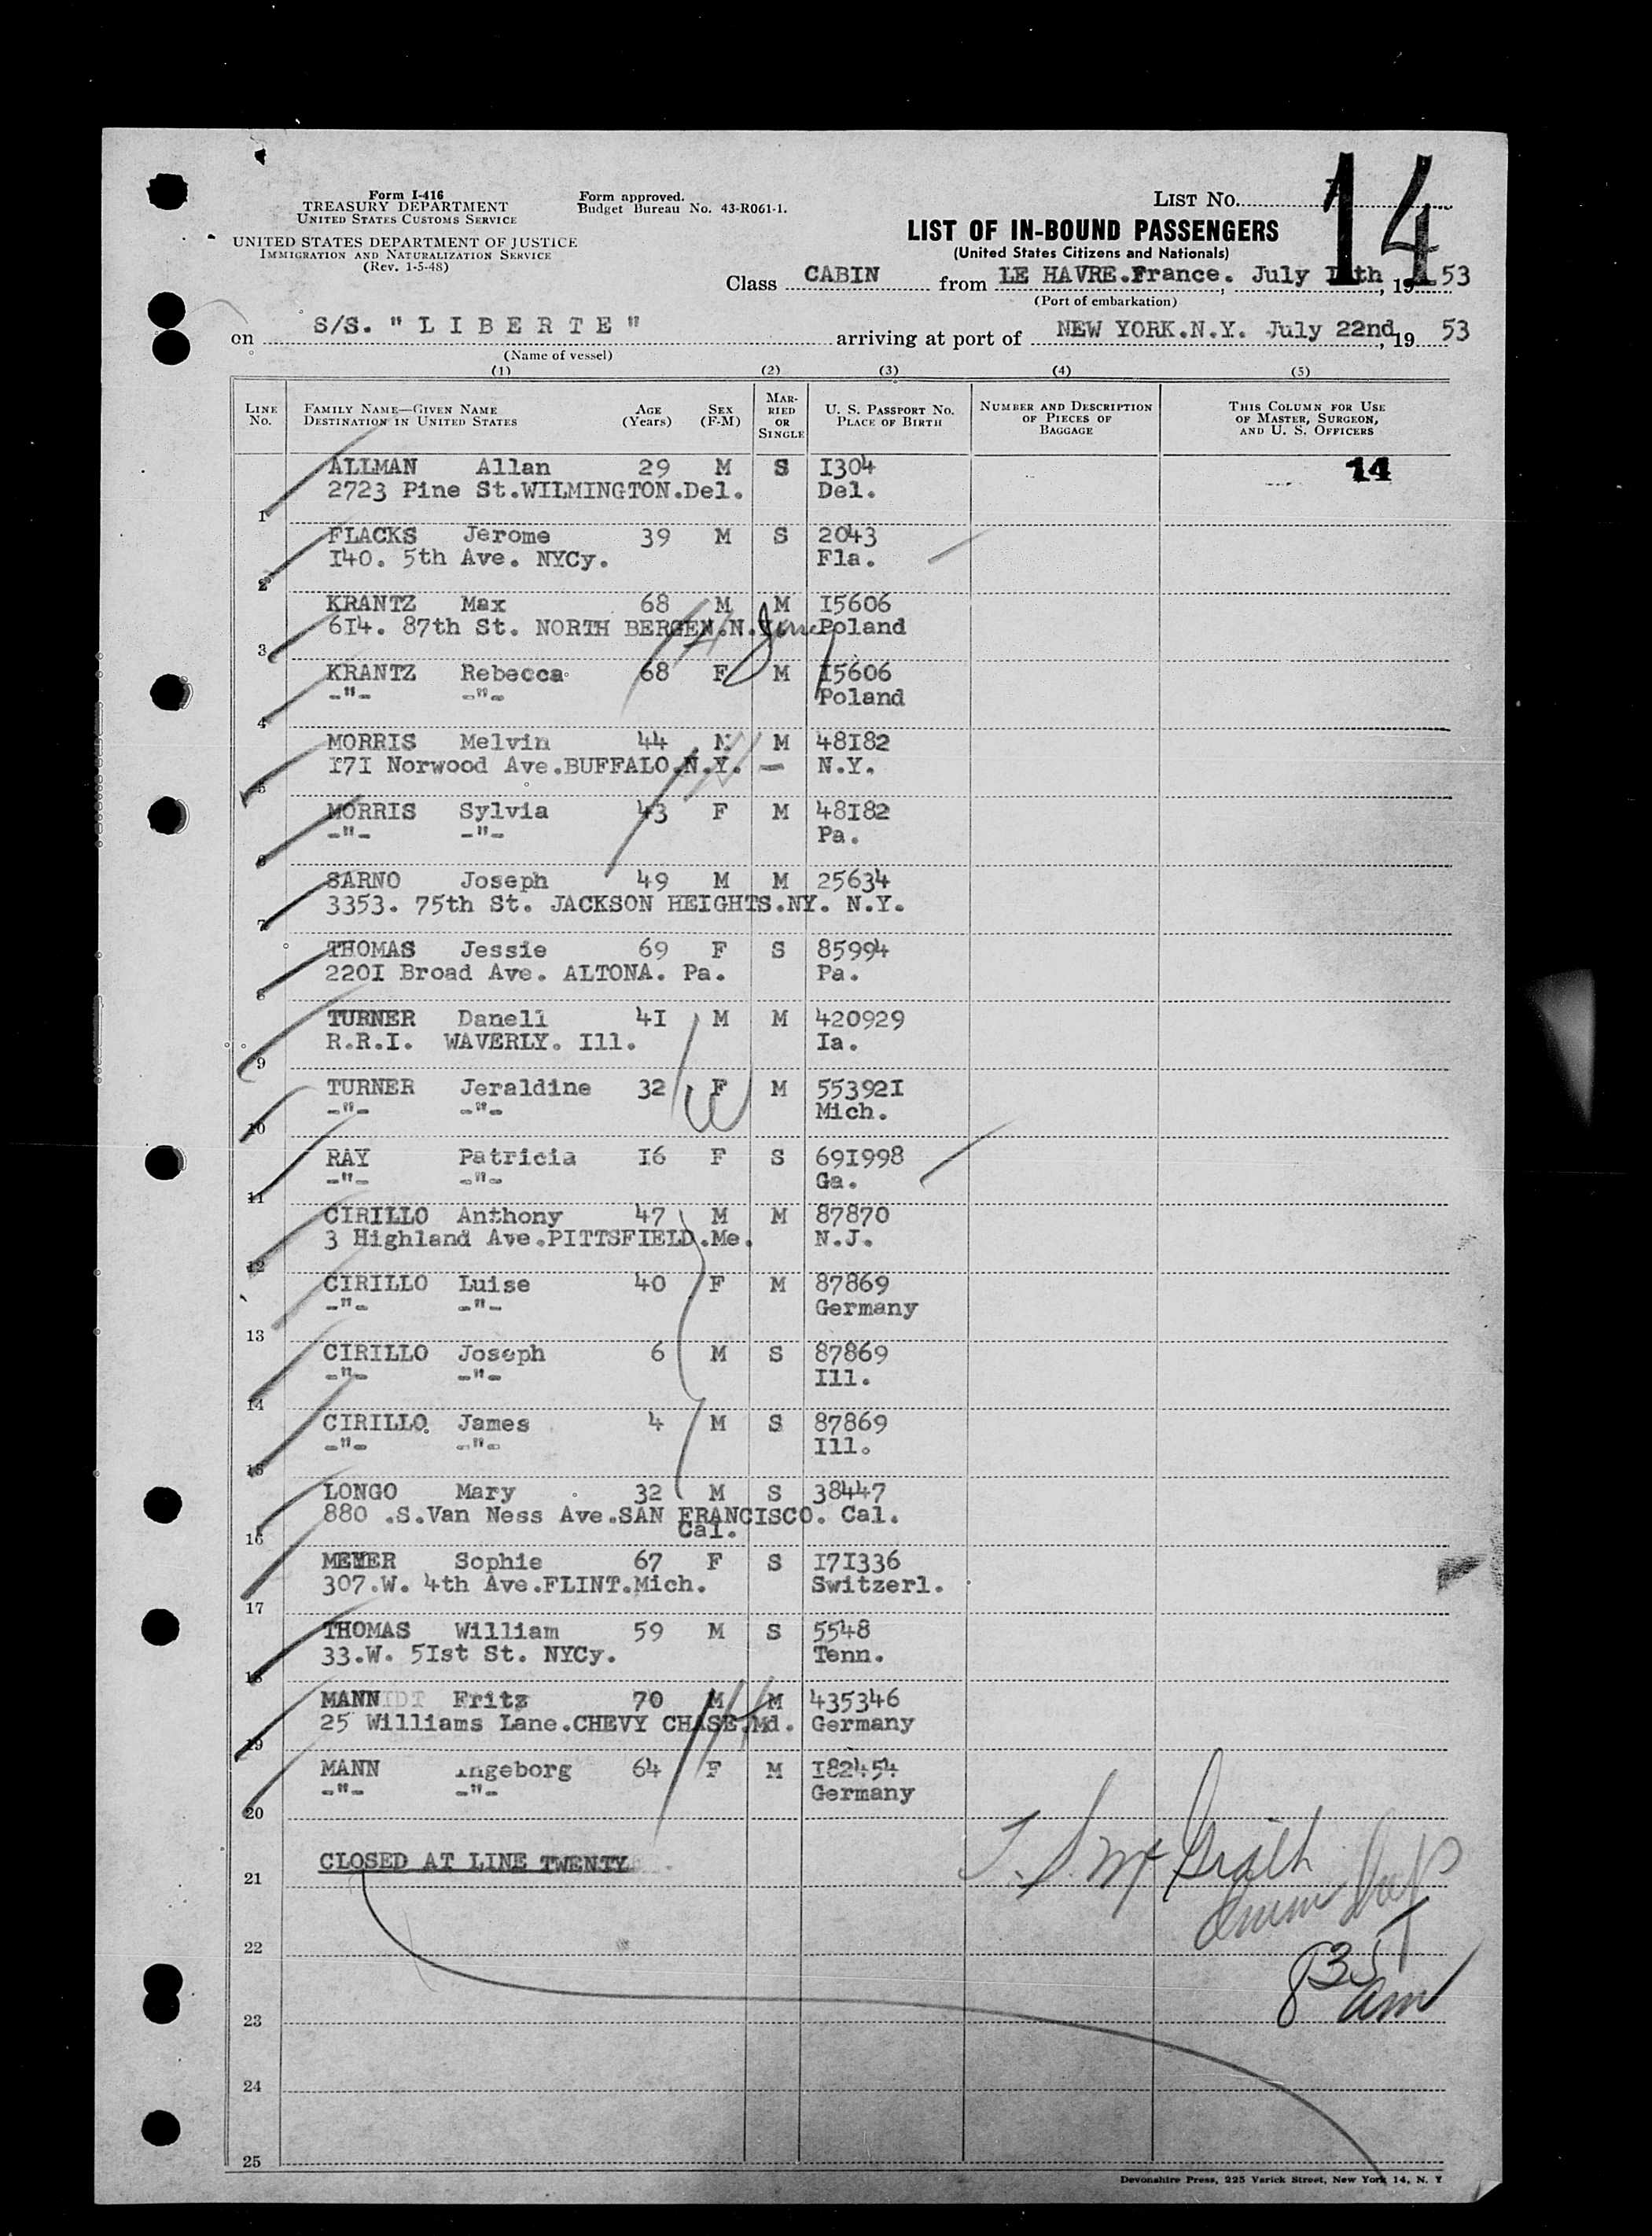 Form I-416
TREASURY DEPARTMENT
UNITED STATES CUSTOMS SERVICE
UNITED STATES DEPARTMENT OF JUSTICE
IMMIGRATION AND NATURALIZATION SERVICE
(Rev. 1-5-48)
Form approved.
Budget Bureau No. 43-R061-1.
LIST NO. 14
LIST OF IN-BOUND PASSENGERS
(United States Citizens and Nationals)
Class CABIN from LE HAVRE.France. July , 1953
(Port of embarkation)
on S/S. " L I B E R T E " arriving at port of NEW YORK.N.Y. July 22nd, 19 53
(Name of vessel)
(1) (2) (3) (4) (5)
LINE NO. FAMILY NAME—GIVEN NAME DESTINATION IN UNITED STATES AGE (YEARS) SEX (F-M) MARRIED OR SINGLE U. S. PASSPORT NO. PLACE OF BIRTH NUMBER AND DESCRIPTION OF PIECES OF BAGGAGE THIS COLUMN FOR USE OF MASTER, SURGEON, AND U. S. OFFICERS
ALLMAN Allan 29 M S I304 14
2723 Pine St.WILMINGTON.Del. Del.
1
FLACKS Jerome 39 M S 2043
I40. 5th Ave. NYCy. Fla.
2
KRANTZ Max 68 M M I5606
6I4. 87th St. NORTH BERGEN.N. Poland
3
KRANTZ Rebecca 68 F M I5606
-"- -"- Poland
4
MORRIS Melvin 44 M M 48I82
I7I Norwood Ave.BUFFALO.N.Y. N.Y.
5
MORRIS Sylvia 43 F M 48I82
-"- -"- Pa.
6
SARNO Joseph 49 M M 25634
3353. 75th St. JACKSON HEIGHTS.NY. N.Y.
7
THOMAS Jessie 69 F S 85994
220I Broad Ave. ALTONA. Pa. Pa.
8
TURNER Danell 4I M M 420929
R.R.I. WAVERLY. Ill. Ia.
9
TURNER Jeraldine 32 F M 55392I
-"- -"- Mich.
10
RAY Patricia I6 F S 69I998
-"- -"- Ga.
11
CIRILLO Anthony 47 M M 87870
3 Highland Ave.PITTSFIELD.Me. N.J.
12
CIRILLO Luise 40 F M 87869
-"- -"- Germany
13
CIRILLO Joseph 6 M S 87869
-"- -"- Ill.
14
CIRILLO. James 4 M S 87869
-"- -"- Ill.
15
LONGO Mary 32 M S 38447
880 .S.Van Ness Ave.SAN FRANCISCO. Cal.
Cal.
16
MEYER Sophie 67 F S I7I336
307.W. 4th Ave.FLINT.Mich. Switzerl.
17
THOMAS William 59 M S 5548
33.W. 5Ist St. NYCy. Tenn.
18
MANN Fritz 70 M M 435346
25 Williams Lane.CHEVY CHASE.Md. Germany
19
MANN Ingeborg 64 F M I82454
-"- -"- Germany
20
CLOSED AT LINE TWENTY
21
T. S. McGrath
Imm Insp
22
835
am
23
24
25
Devonshire Press, 225 Varick Street, New York 14, N. Y